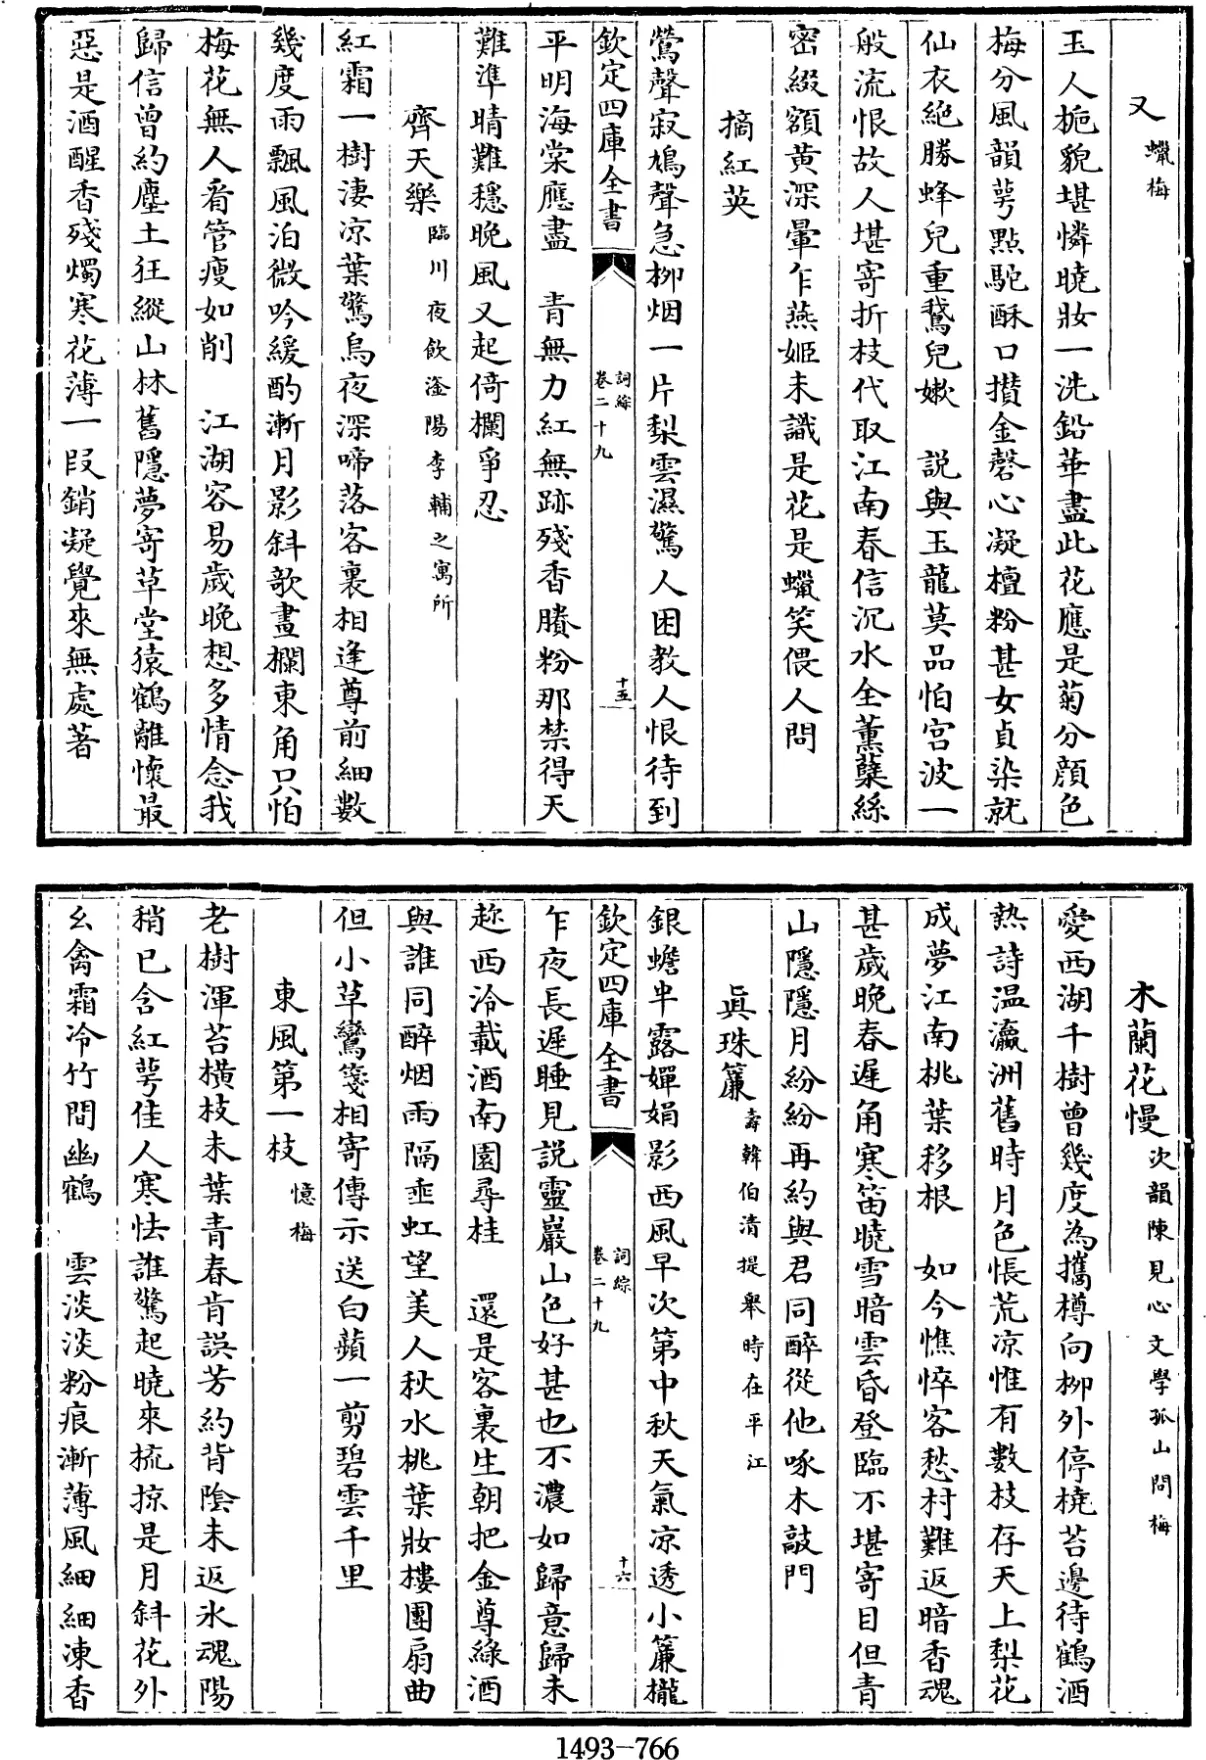 又 蠟梅
玉人梔貌堪憐曉妝一洗鉛華盡此花應是菊分顔色
梅分風韻萼點駝酥口攢金磬心凝檀粉甚女貞染就
仙衣絶勝蜂兒重鵞兒嫩　說與玉龍莫品怕宫波一
般流恨故人堪寄折枝代取江南春信沉水全薰蘗絲
密綴額黃深暈乍燕姬未識是花是蠟笑偎人問
摘紅英
鶯聲寂鳩聲急柳烟一片梨雲濕驚人困教人恨待到
欽定四庫全書　詞綜　卷二十九　十五
平明海棠應盡　青無力紅無跡殘香賸粉那禁得天
難準晴難穩晚風又起倚欄爭忍
齊天樂 臨川夜飲滏陽李輔之寓所
紅霜一樹淒凉葉驚烏夜深啼落客裏相逢尊前細數
幾度雨飄風泊微吟緩酌漸月影斜欹畫欄東角只怕
梅花無人看管瘦如削　江湖容易歲晚想多情念我
歸信曾約塵土狂蹤山林舊隱夢寄草堂猿鶴離懷最
惡是酒醒香殘燭寒花薄一叚銷凝覺來無處著
木蘭花慢 次韻陳見心文學孤山問梅
愛西湖千樹曾幾度為攜樽向柳外停橈苔邊待鶴酒
熱詩温瀛洲舊時月色悵荒凉惟有數枝存天上梨花
成夢江南桃葉移根　如今憔悴客愁村難返暗香魂
甚歲晚春遲角寒笛曉雪暗雲昏登臨不堪寄目但青
山隱隱月紛紛再約與君同醉從他啄木敲門
眞珠簾 壽韓伯清提舉時在平江
銀蟾半露嬋娟影西風早次第中秋天氣凉透小簾櫳
欽定四庫全書　詞綜　卷二十九　十六
乍夜長遲睡見說靈巖山色好甚也不濃如歸意歸未
趂西泠載酒南園尋桂　還是客裏生朝把金尊綠酒
與誰同醉烟雨隔垂虹望美人秋水桃葉妝樓團扇曲
但小草鸞箋相寄傳示送白蘋一剪碧雲千里
東風第一枝 憶梅
老樹渾苔橫枝未葉青春肯誤芳約背陰未返氷魂陽
稍已含紅萼佳人寒怯誰驚起曉來梳掠是月斜花外
幺禽霜冷竹間幽鶴　雲淡淡粉痕漸薄風細細凍香
1493—766